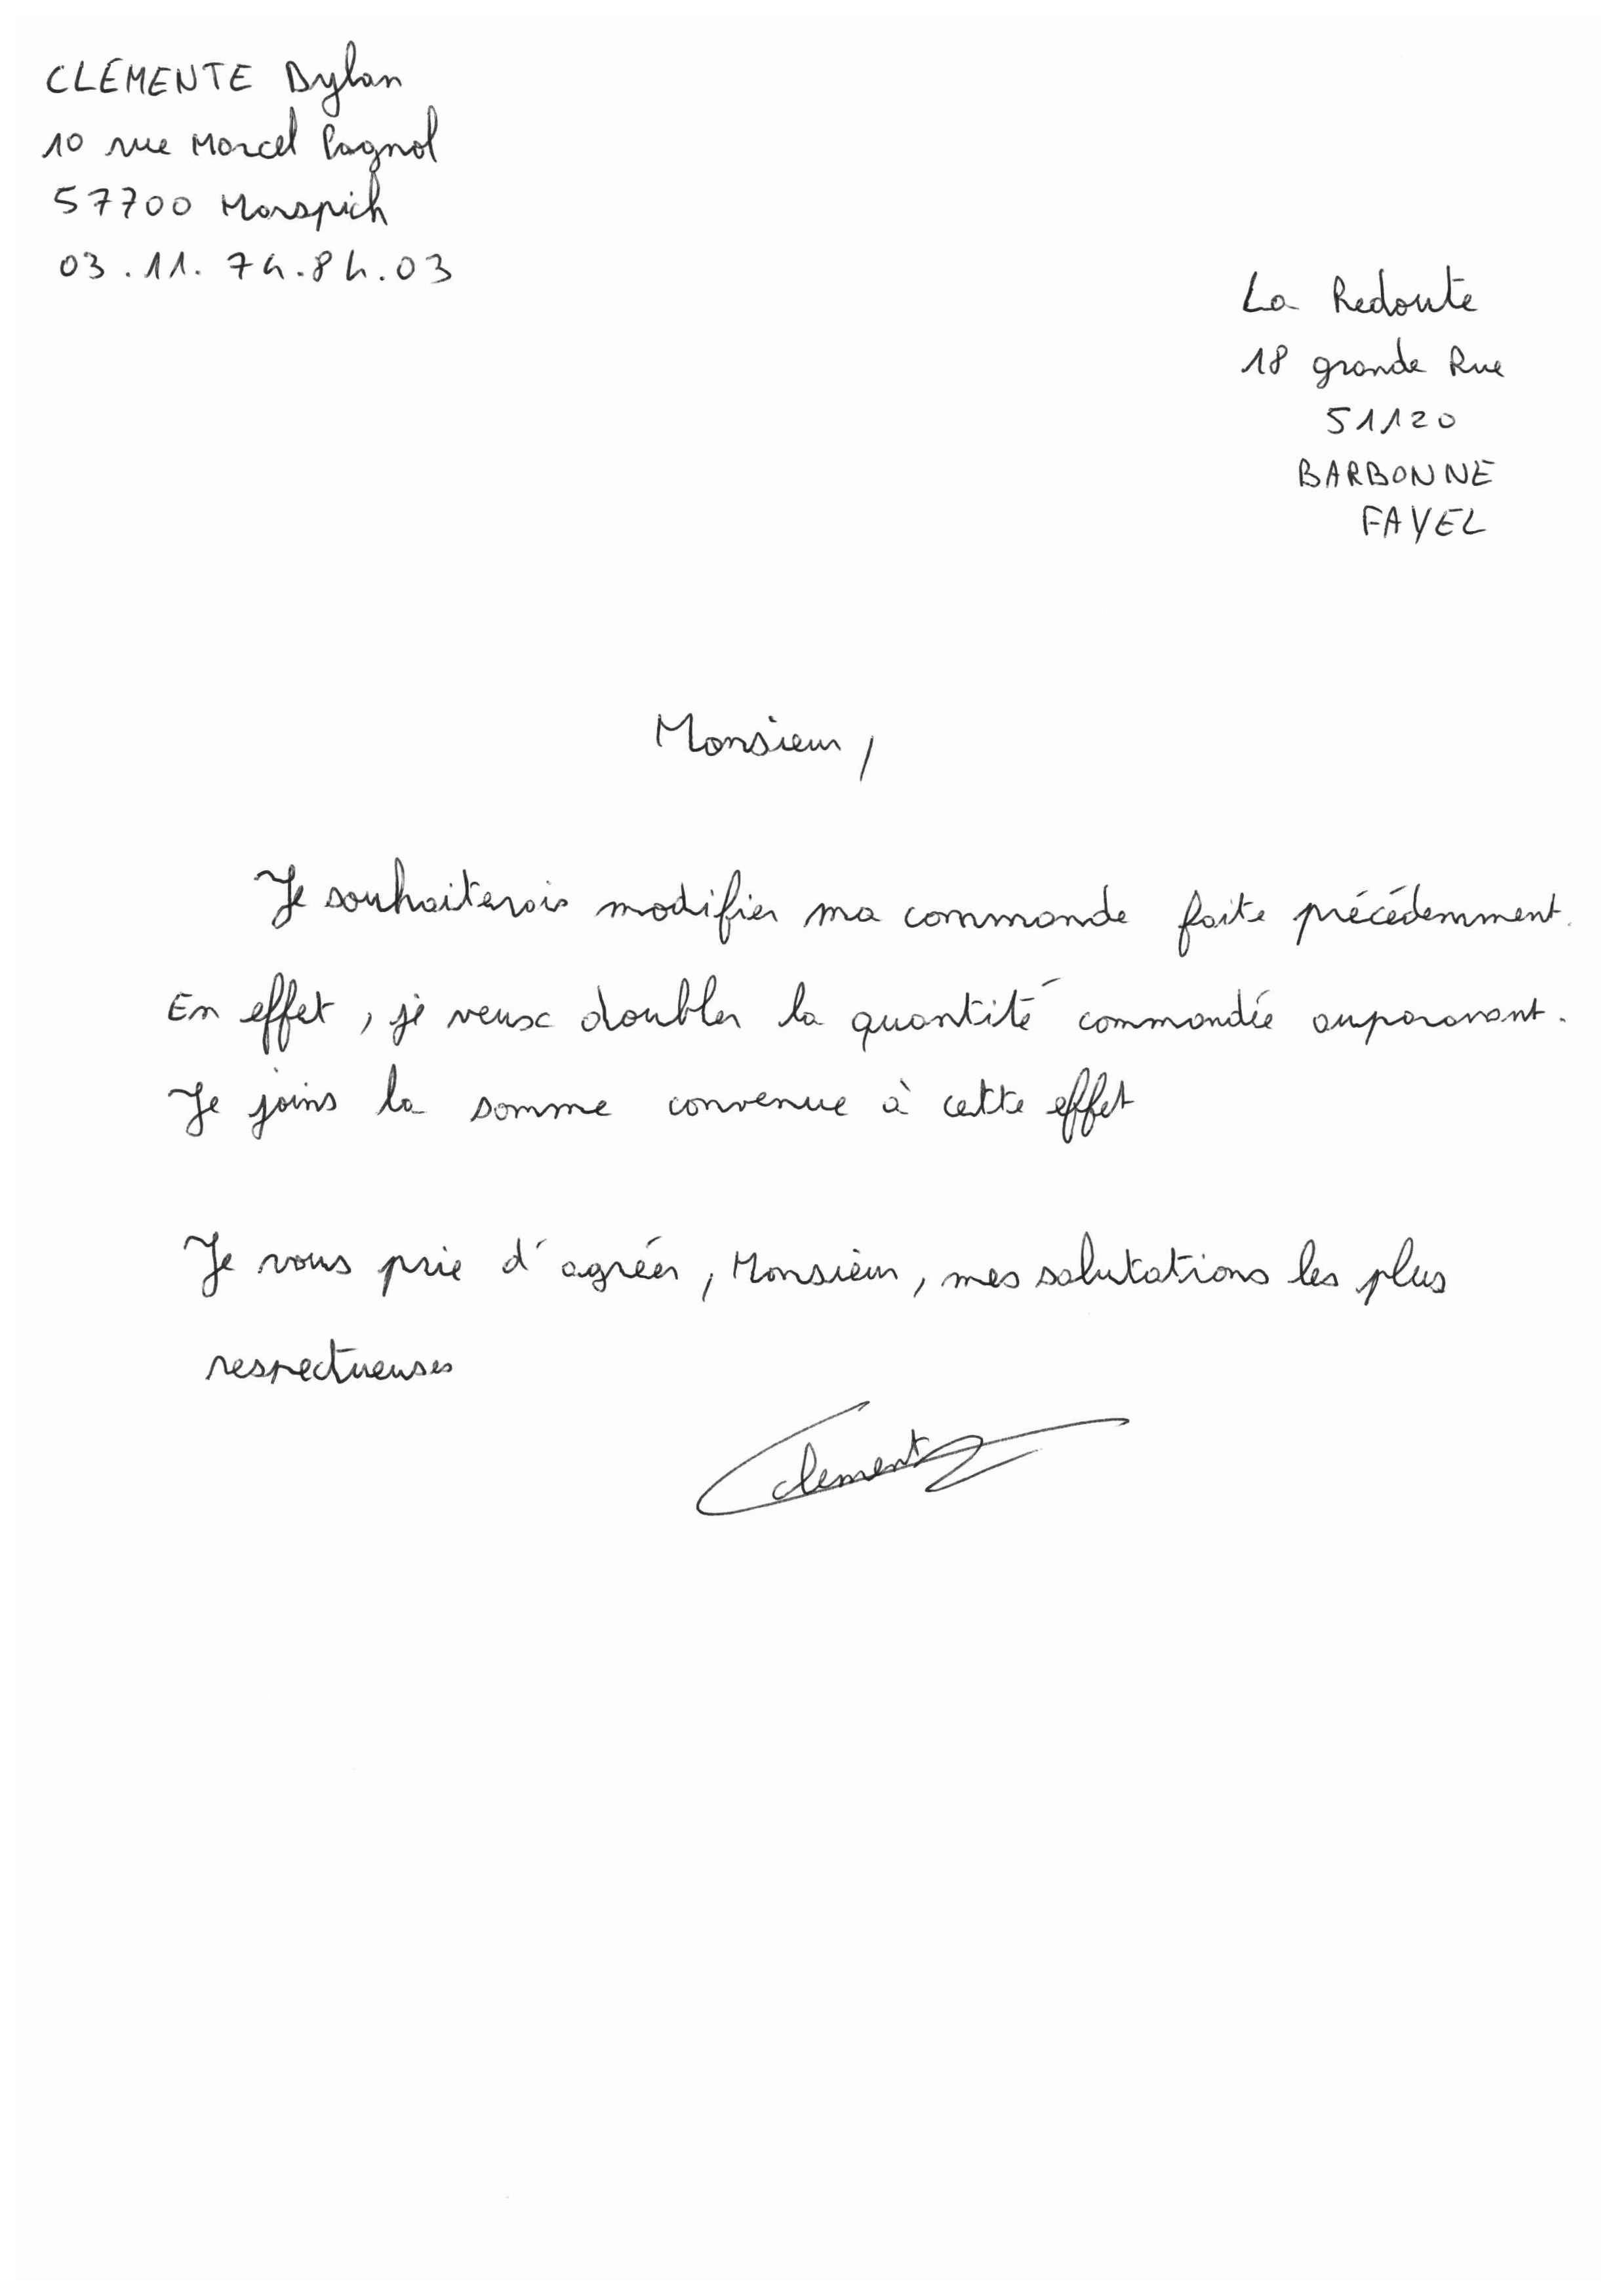 CLEMENTE Dylan
10 rue Marcel Pagnol
57700 Marspich
03.11.74.84.03
La Redoute
18 grande Rue
51120
BARBONNE
FAYEL
Monsieur,
Je souhaiterais modifier ma commande faite précédemment.
En effet, je veux doubler la quantité commandée auparavant.
Je joins la somme convenue à cette effet
Je vous prie d'agréer, Monsieur, mes salutations les plus
respectueuses
Clemente